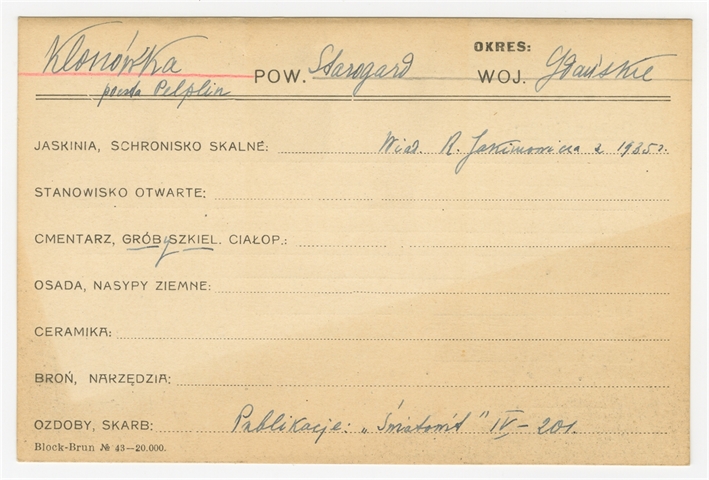 OKRES:
Klonówka POW. Starogard WOJ. Gdańskie
poczta Pelplin
JASKINIA, SCHRONISKO SKALNE: Wiad. R. Jakimowicza z 1935 r.
STANOWISKO OTWARTE:
CMENTARZ, GRÓBY SZKIEL. CIAŁOP.:
OSADA, NASYPY ZIEMNE:
CERAMIKA:
BROŃ, NARZĘDZIA:
OZDOBY, SKARB: Publikacje: „Światowit" IV – 201.
Block-Brun № 43—20.000.